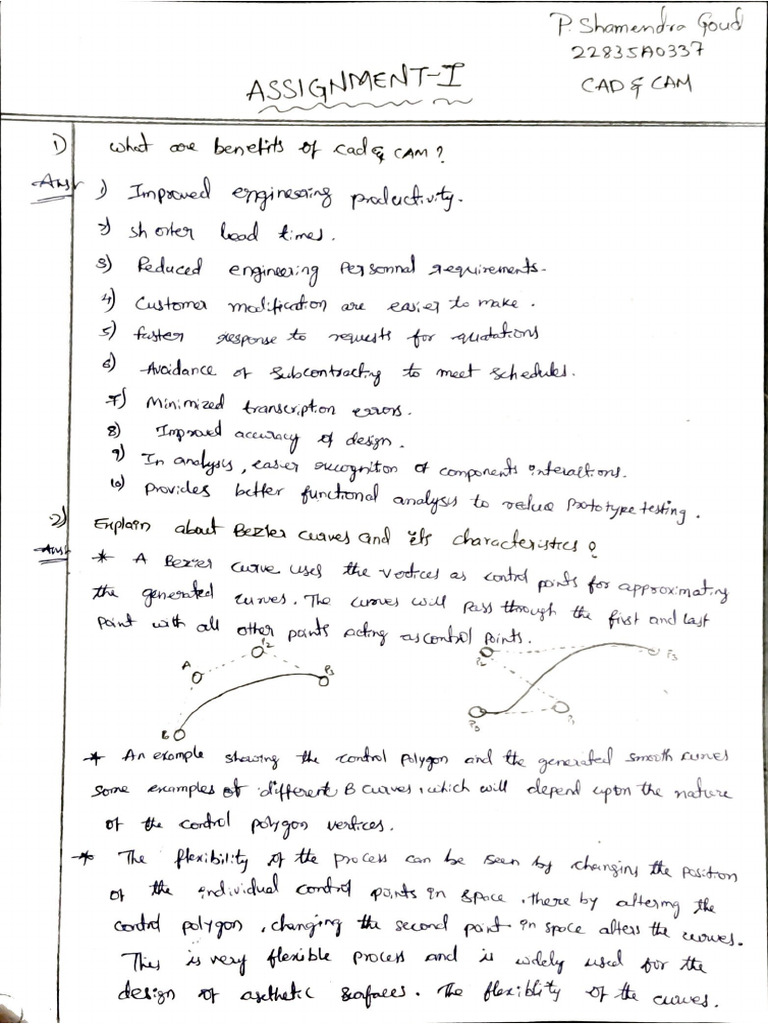 P. Shamendra Goud
22835A0337
CAD & CAM
ASSIGNMENT-I
1) What are benefits of cad & CAM?
Ans 1) Improved engineering productivity.
2) shorter lead times.
3) Reduced engineering Personnal requirements.
4) Customer modification are easier to make.
5) faster response to requests for quatations
6) Avoidance of subcontracting to meet schedules.
7) Minimized transcription errors.
8) Improved accuracy of design.
9) In analysis, easier recogniton of components interactions.
10) Provides better functional analysis to reduce Prototype testing.
2) Explain about Bezier curves and its characteristics?
Ans * A Bezier curve uses the vertices as control points for approximating
the generated curves. The curves will pass through the first and last
point with all other points acting as control points.
P2 P2 P3
P3
P0 P1
* An example showing the control polygon and the generated smooth curves
some examples of different B curves, which will depend upon the nature
of the control polygon vertices.
* The flexibility of the process can be seen by changing the position
of the individual control points in space, there by altering the
control polygon, changing the second point in space alters the curves.
This is very flexible process and is widely used for the
design of asthetic surfaces. The flexiblity of the curves.